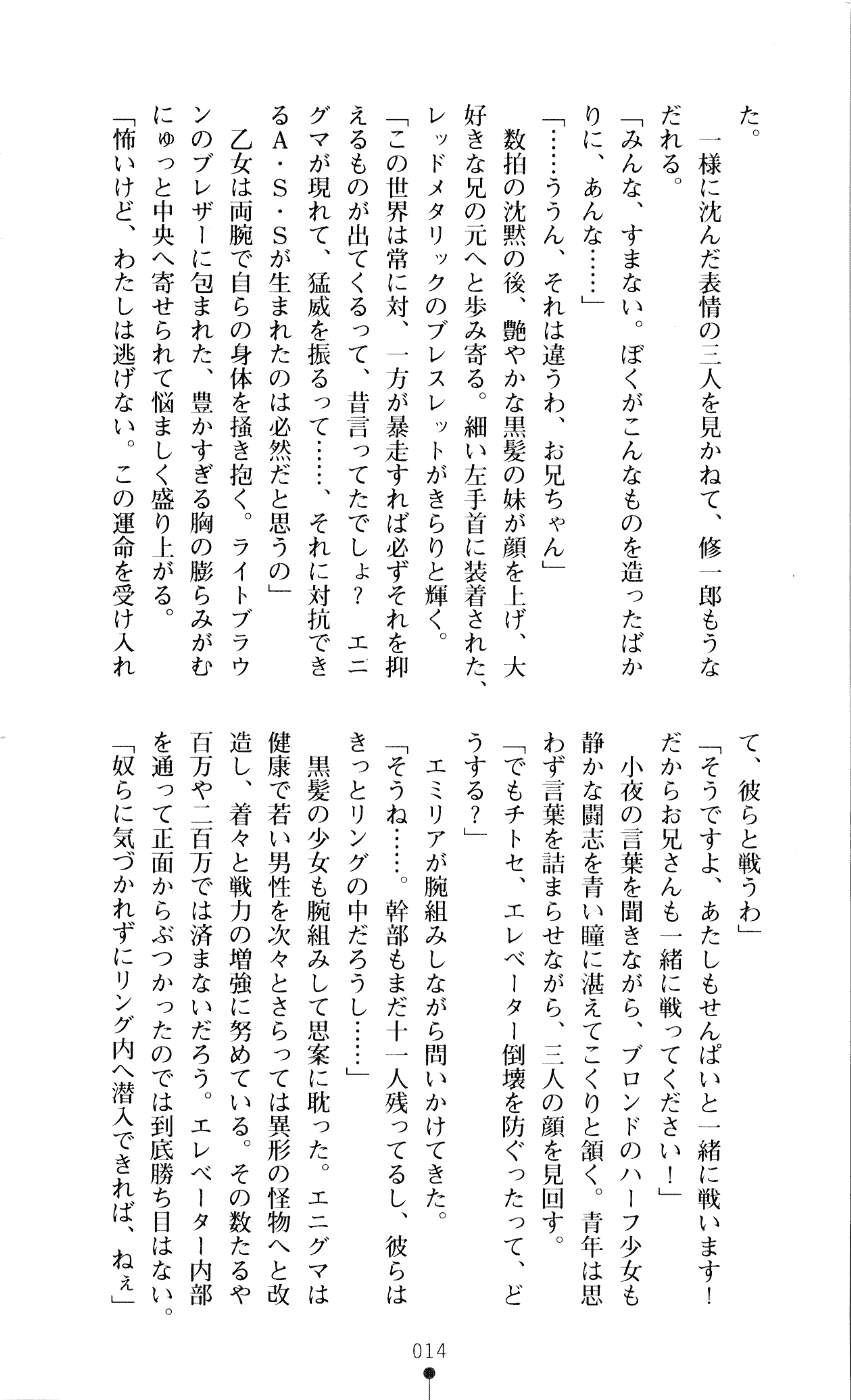 た。
　一様に沈んだ表情の三人を見かねて、修一郎もうな
だれる。
「みんな、すまない。ぼくがこんなものを造ったばか
りに、あんな……」
「……ううん、それは違うわ、お兄ちゃん」
　数拍の沈黙の後、艶やかな黒髪の妹が顔を上げ、大
好きな兄の元へと歩み寄る。細い左手首に装着された、
レッドメタリックのブレスレットがきらりと輝く。
「この世界は常に対、一方が暴走すれば必ずそれを抑
えるものが出てくるって、昔言ってたでしょ？　エニ
グマが現れて、猛威を振るって……、それに対抗でき
るＡ・Ｓ・Ｓが生まれたのは必然だと思うの」
　乙女は両腕で自らの身体を掻き抱く。ライトブラウ
ンのブレザーに包まれた、豊かすぎる胸の膨らみがむ
にゅっと中央へ寄せられて悩ましく盛り上がる。
「怖いけど、わたしは逃げない。この運命を受け入れ
て、彼らと戦うわ」
「そうですよ、あたしもせんぱいと一緒に戦います！
だからお兄さんも一緒に戦ってください！」
　小夜の言葉を聞きながら、ブロンドのハーフ少女も
静かな闘志を青い瞳に湛えてこくりと頷く。青年は思
わず言葉を詰まらせながら、三人の顔を見回す。
「でもチトセ、エレベーター倒壊を防ぐったって、ど
うする？」
　エミリアが腕組みしながら問いかけてきた。
「そうね……。幹部もまだ十一人残ってるし、彼らは
きっとリングの中だろうし……」
　黒髪の少女も腕組みして思案に耽った。エニグマは
健康で若い男性を次々とさらっては異形の怪物へと改
造し、着々と戦力の増強に努めている。その数たるや
百万や二百万では済まないだろう。エレベーター内部
を通って正面からぶつかったのでは到底勝ち目はない。
「奴らに気づかれずにリング内へ潜入できれば、ねぇ」
014